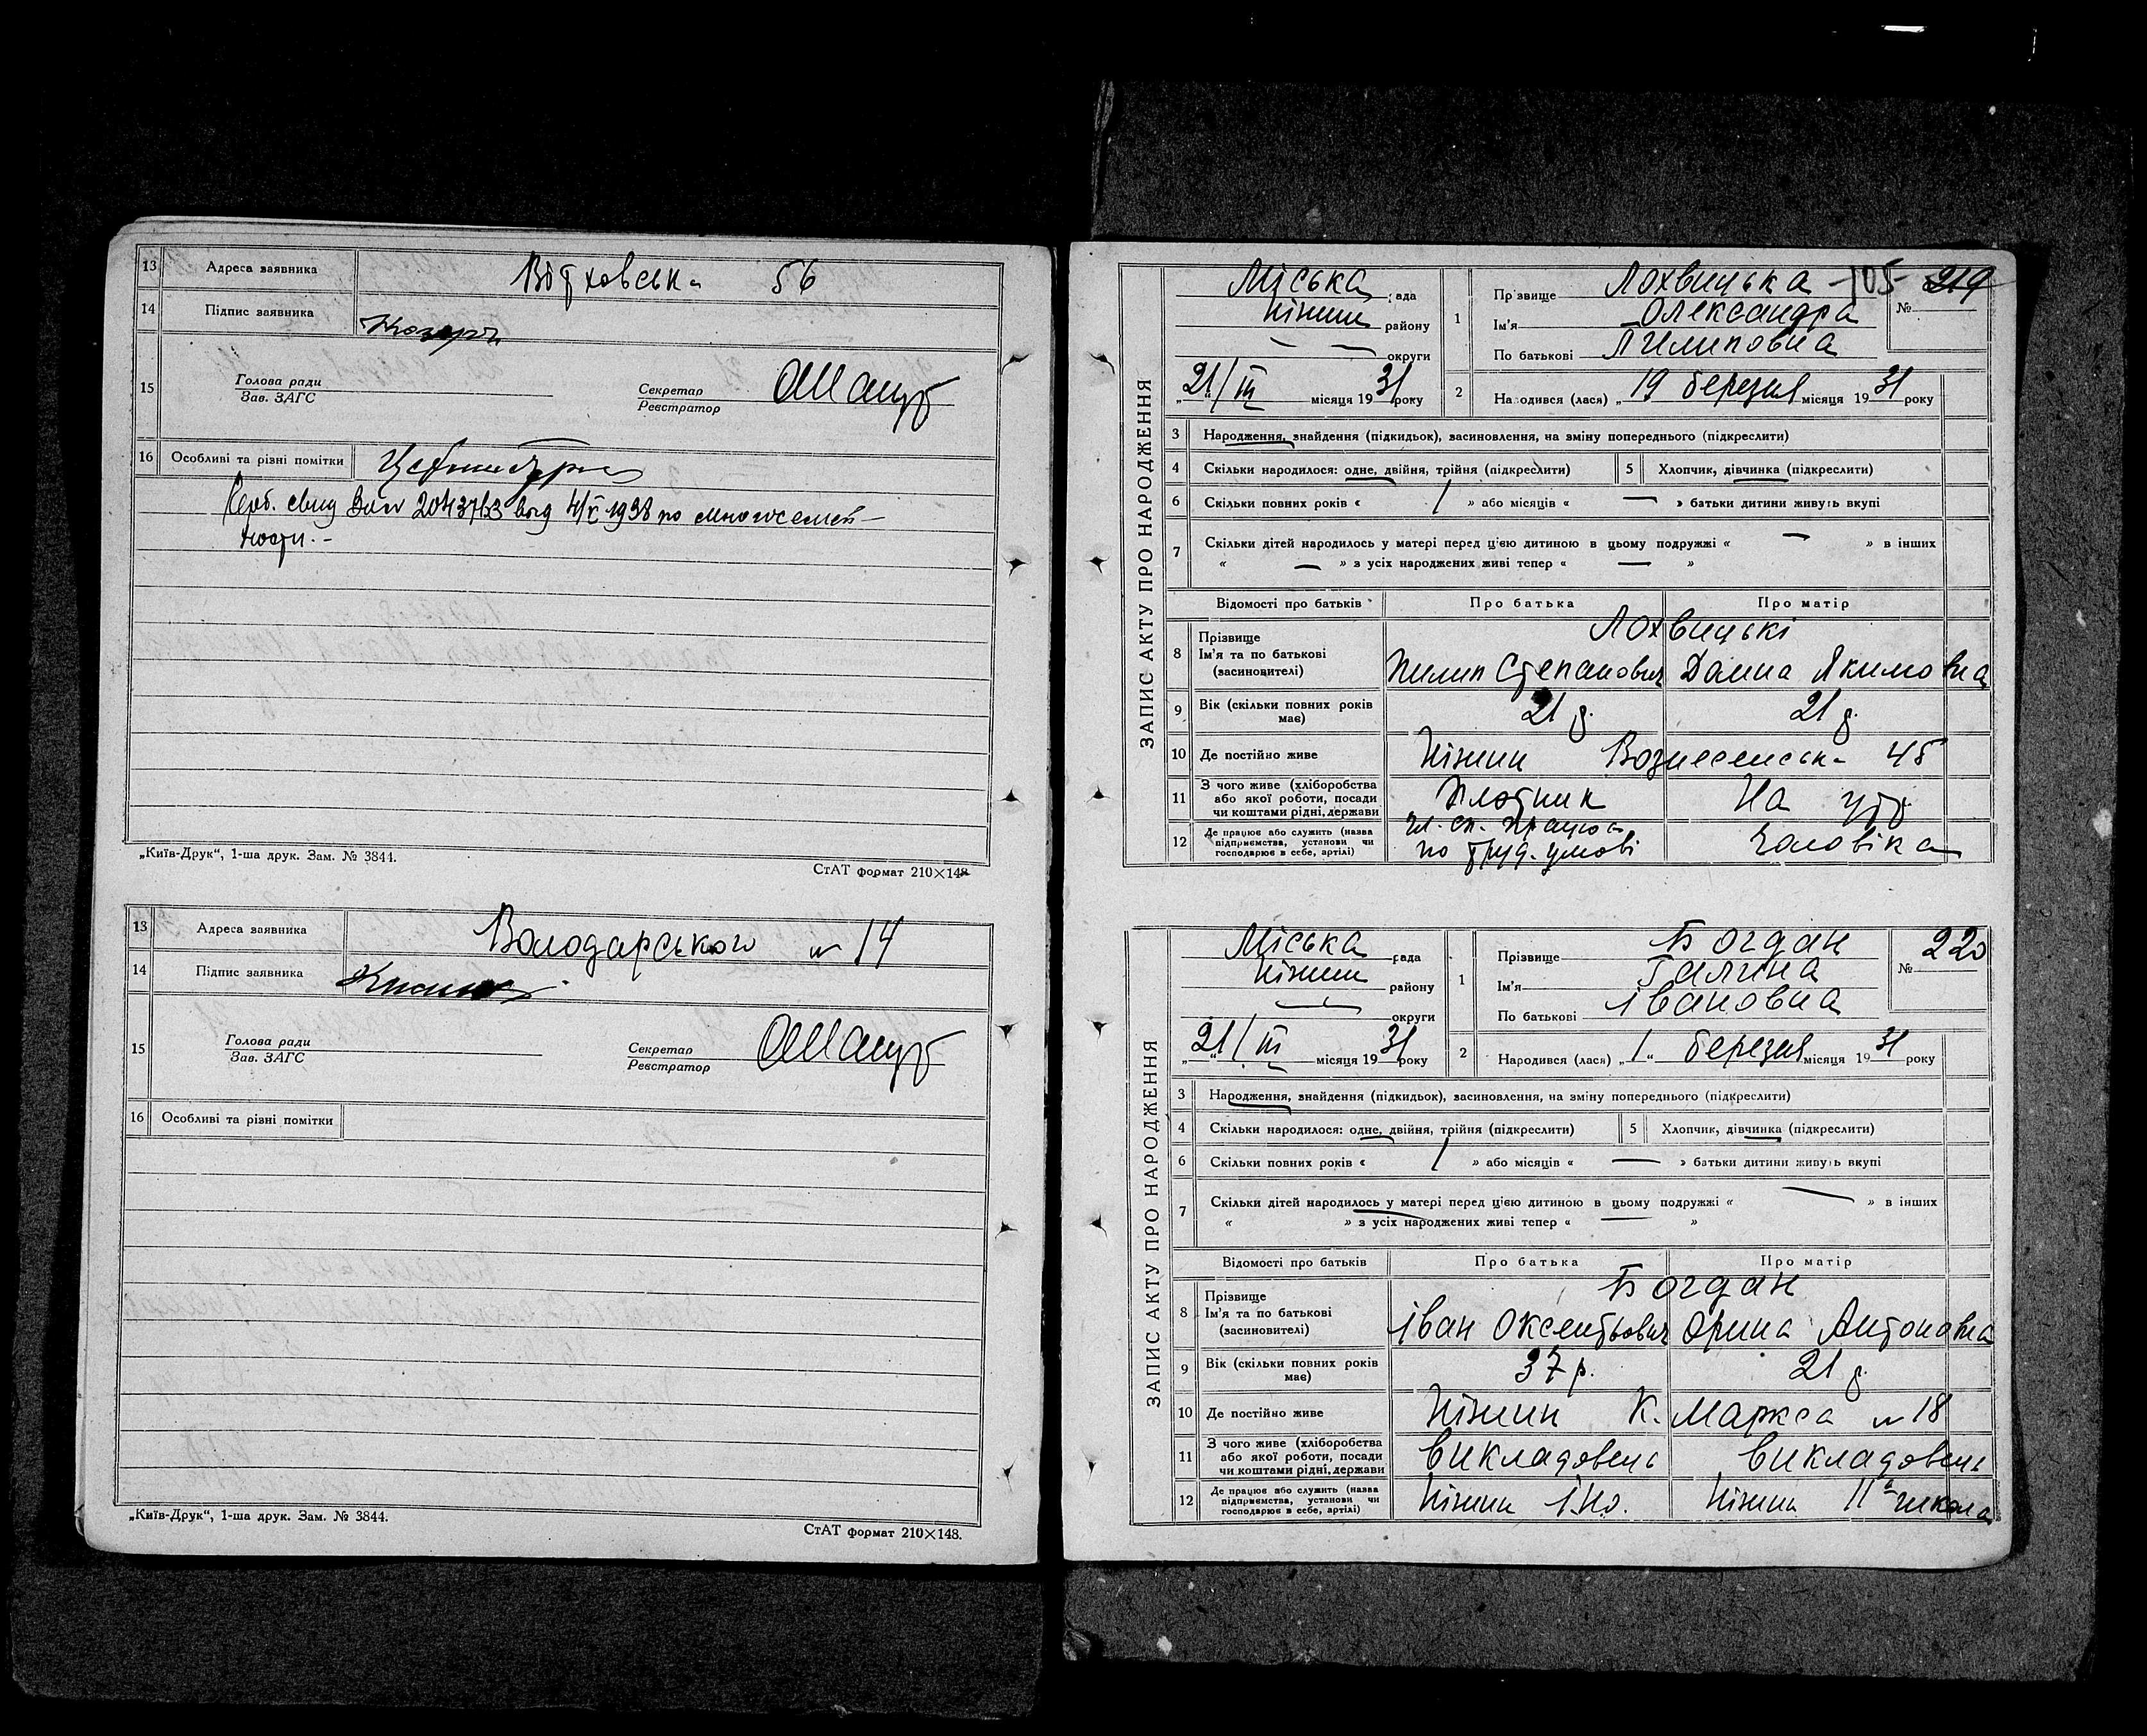 13 Адреса заявника 56
14 Підпис заявника
15 Голова ради
Зав. ЗАГС
Секретар
Реєстратор
16 Особливі та різні помітки
свид 1938 по многосемей-
ности.-
„Київ-Друк“, 1-ша друк. Зам. № 3844.
СтАТ формат 210×148
13 Адреса заявника Володарського № 14
14 Підпис заявника
15 Голова ради
Зав. ЗАГС
Секретар
Реєстратор
16 Особливі та різні помітки
„Київ-Друк“, 1-ша друк. Зам. № 3844.
СтАТ формат 210×148.
ЗАПИС АКТУ ПРО НАРОДЖЕННЯ
Міська рада
Ніжин району
— — округи
„21/III місяця 1931 року
1 Прізвище Лохвицька 105 219
Ім'я Олександра №
По батькові Пилиповна
2 Народився (лася) „19 березня місяця 1931 року
3 Народження, знайдення (підкидьок), засиновлення, на зміну попереднього (підкреслити)
4 Скільки народилося: одне, двійня, трійня (підкреслити) 5 Хлопчик, дівчинка (підкреслити)
6 Скільки повних років « 1 » або місяців « — » батьки дитини живуть вкупі
7 Скільки дітей народилось у матері перед цією дитиною в цьому подружжі « — » в інших
« — » з усіх народжених живі тепер « — »
Відомості про батьків Про батька Про матір
8 Прізвище Лохвицькі
Ім'я та по батькові
(засиновителі) Пилип Степанович Данна Якимовна
9 Вік (скільки повних років має) 21 р. 21 р.
10 Де постійно живе Ніжин Вознесенськ- 45
11 З чого живе (хліборобства
або якої роботи, посади
чи коштами рідні, держави Плотник На утр
12 Де працює або служить (назва
підприємства, установи чи
господарює в себе, артілі) по труд. умові чоловіка
ЗАПИС АКТУ ПРО НАРОДЖЕННЯ
Міська рада
Ніжин району
— округи
„21/III місяця 1931 року
1 Прізвище Богдан № 220
Ім'я Галина
По батькові Івановна
2 Народився (лася) „1“ березня місяця 1931 року
3 Народження, знайдення (підкидьок), засиновлення, на зміну попереднього (підкреслити)
4 Скільки народилося: одне, двійня, трійня (підкреслити) 5 Хлопчик, дівчинка (підкреслити)
6 Скільки повних років « 1 » або місяців « — » батьки дитини живуть вкупі
7 Скільки дітей народилось у матері перед цією дитиною в цьому подружжі « — » в інших
« » з усіх народжених живі тепер « — »
Відомості про батьків Про батька Про матір
8 Прізвище Богдан
Ім'я та по батькові
(засиновителі) Іван Оксентьович Орина Антоновна
9 Вік (скільки повних років має) 37 р. 21 р.
10 Де постійно живе Ніжин К. Маркса № 18
11 З чого живе (хліборобства
або якої роботи, посади
чи коштами рідні, держави Викладовець Викладовець
12 Де працює або служить (назва
підприємства, установи чи
господарює в себе, артілі) Ніжин ІНО. Ніжин 11а школа